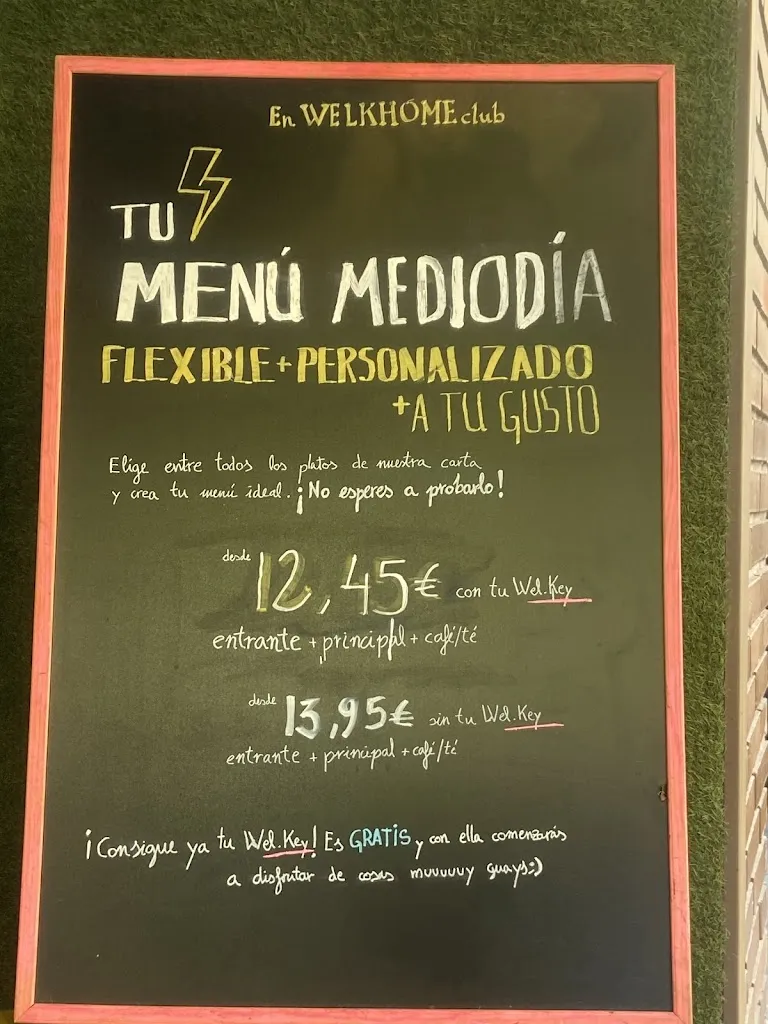 En WELKHOME club
TU
MENÚ MEDIODÍA
FLEXIBLE + PERSONALIZADO
+A TU GUSTO
Elige entre todos los platos de nuestra carta
y crea tu menú ideal. ¡No esperes a probarlo!
desde 12,45€ con tu Wel.Key
entrante + principal + café/té
desde 13,95€ sin tu Wel.Key
entrante + principal + café/té
¡Consigue ya tu Wel.Key! Es GRATIS y con ella comenzarás
a disfrutar de cosas muuuuuy guays:)